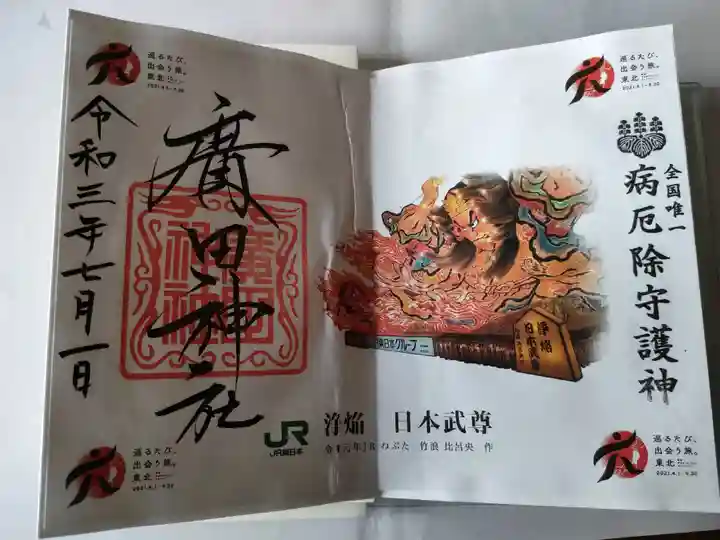 巡るたび、
出会う旅。
東北
2021.4.1-9.30
令和三年七月一日
廣田神社
廣田神社
JR
JR東日本
巡るたび、
出会う旅。
東北
2021.4.1-9.30
巡るたび、
出会う旅。
東北
2021.4.1-9.30
全国唯一
病厄除守護神
グループ
浄焔
日本武尊
浄焔 日本武尊
令和元年JRねぶた 竹浪 比呂央 作
巡るたび、
出会う旅。
東北
2021.4.1-9.30